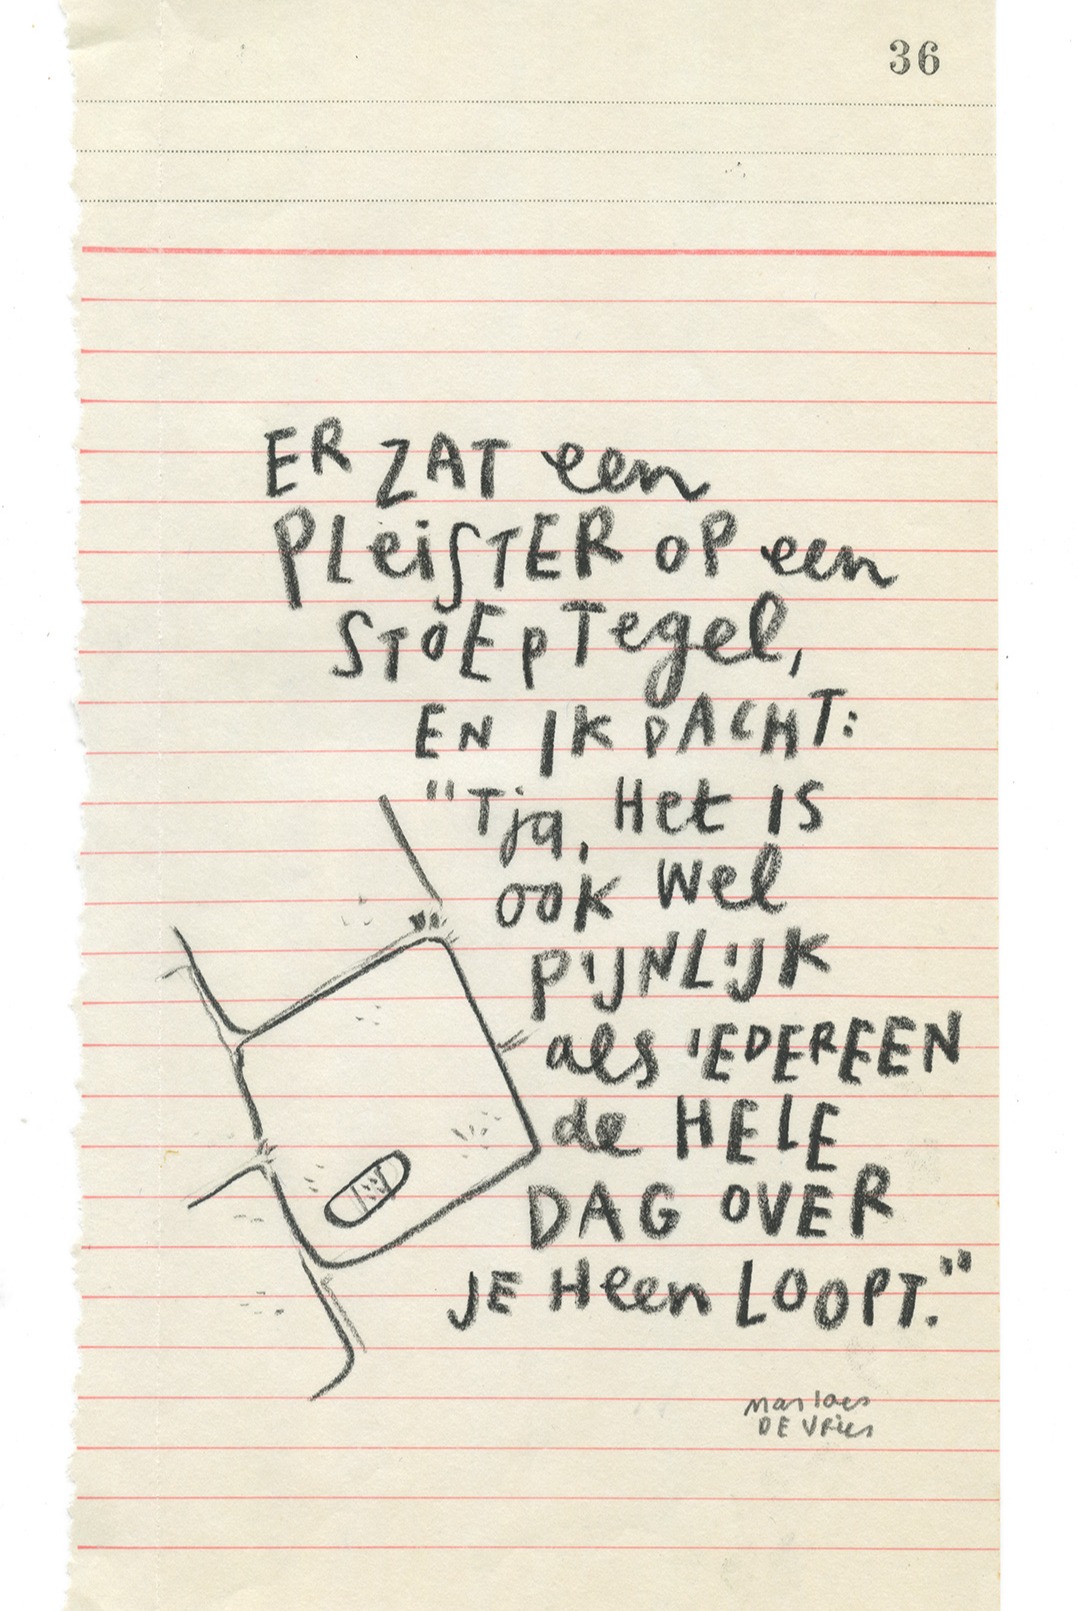 36
ER ZAT een
PLeiSTER OP een
STOEpTegel,
EN IK DACHT:
"Tja, Het IS
OOK Wel
PIJNLIJK
als IEDEREEN
de HELE
DAG OVER
JE Heen LOOPT."
Marloes
DE VRies